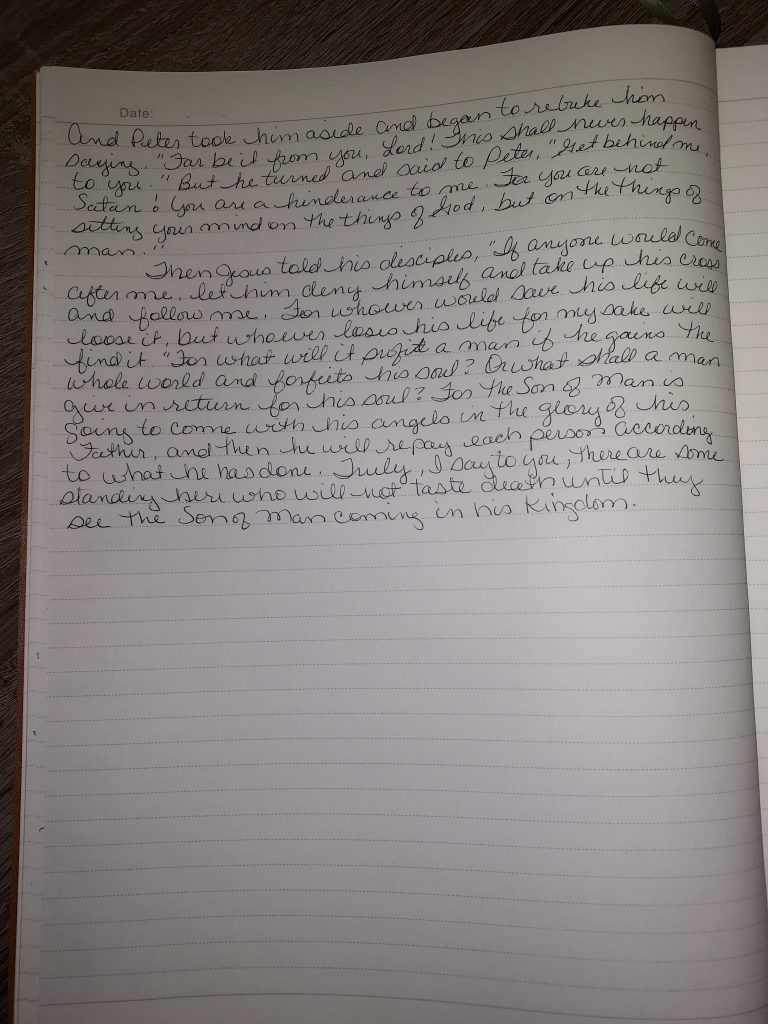 Date:
And Peter took him aside and began to rebuke him
saying, "Far be it from you, Lord! This shall never happen
to you." But he turned and said to Peter, "Get behind me,
Satan! You are a hinderance to me. For you are not
setting your mind on the things of God, but on the things of
man."
Then Jesus told his disciples, "If anyone would come
after me, let him deny himself and take up his cross
and follow me. For whoever would save his life will
loose it, but whoever loses his life for my sake will
find it. "For what will it profit a man if he gains the
whole world and forfiets his soul? Or what shall a man
give in return for his soul? For the Son of Man is
going to come with his angels in the glory of his
Father, and then he will repay each person according
to what he has done. Truly, I say to you, there are some
standing here who will not taste death until they
see the Son of Man coming in his Kingdom.